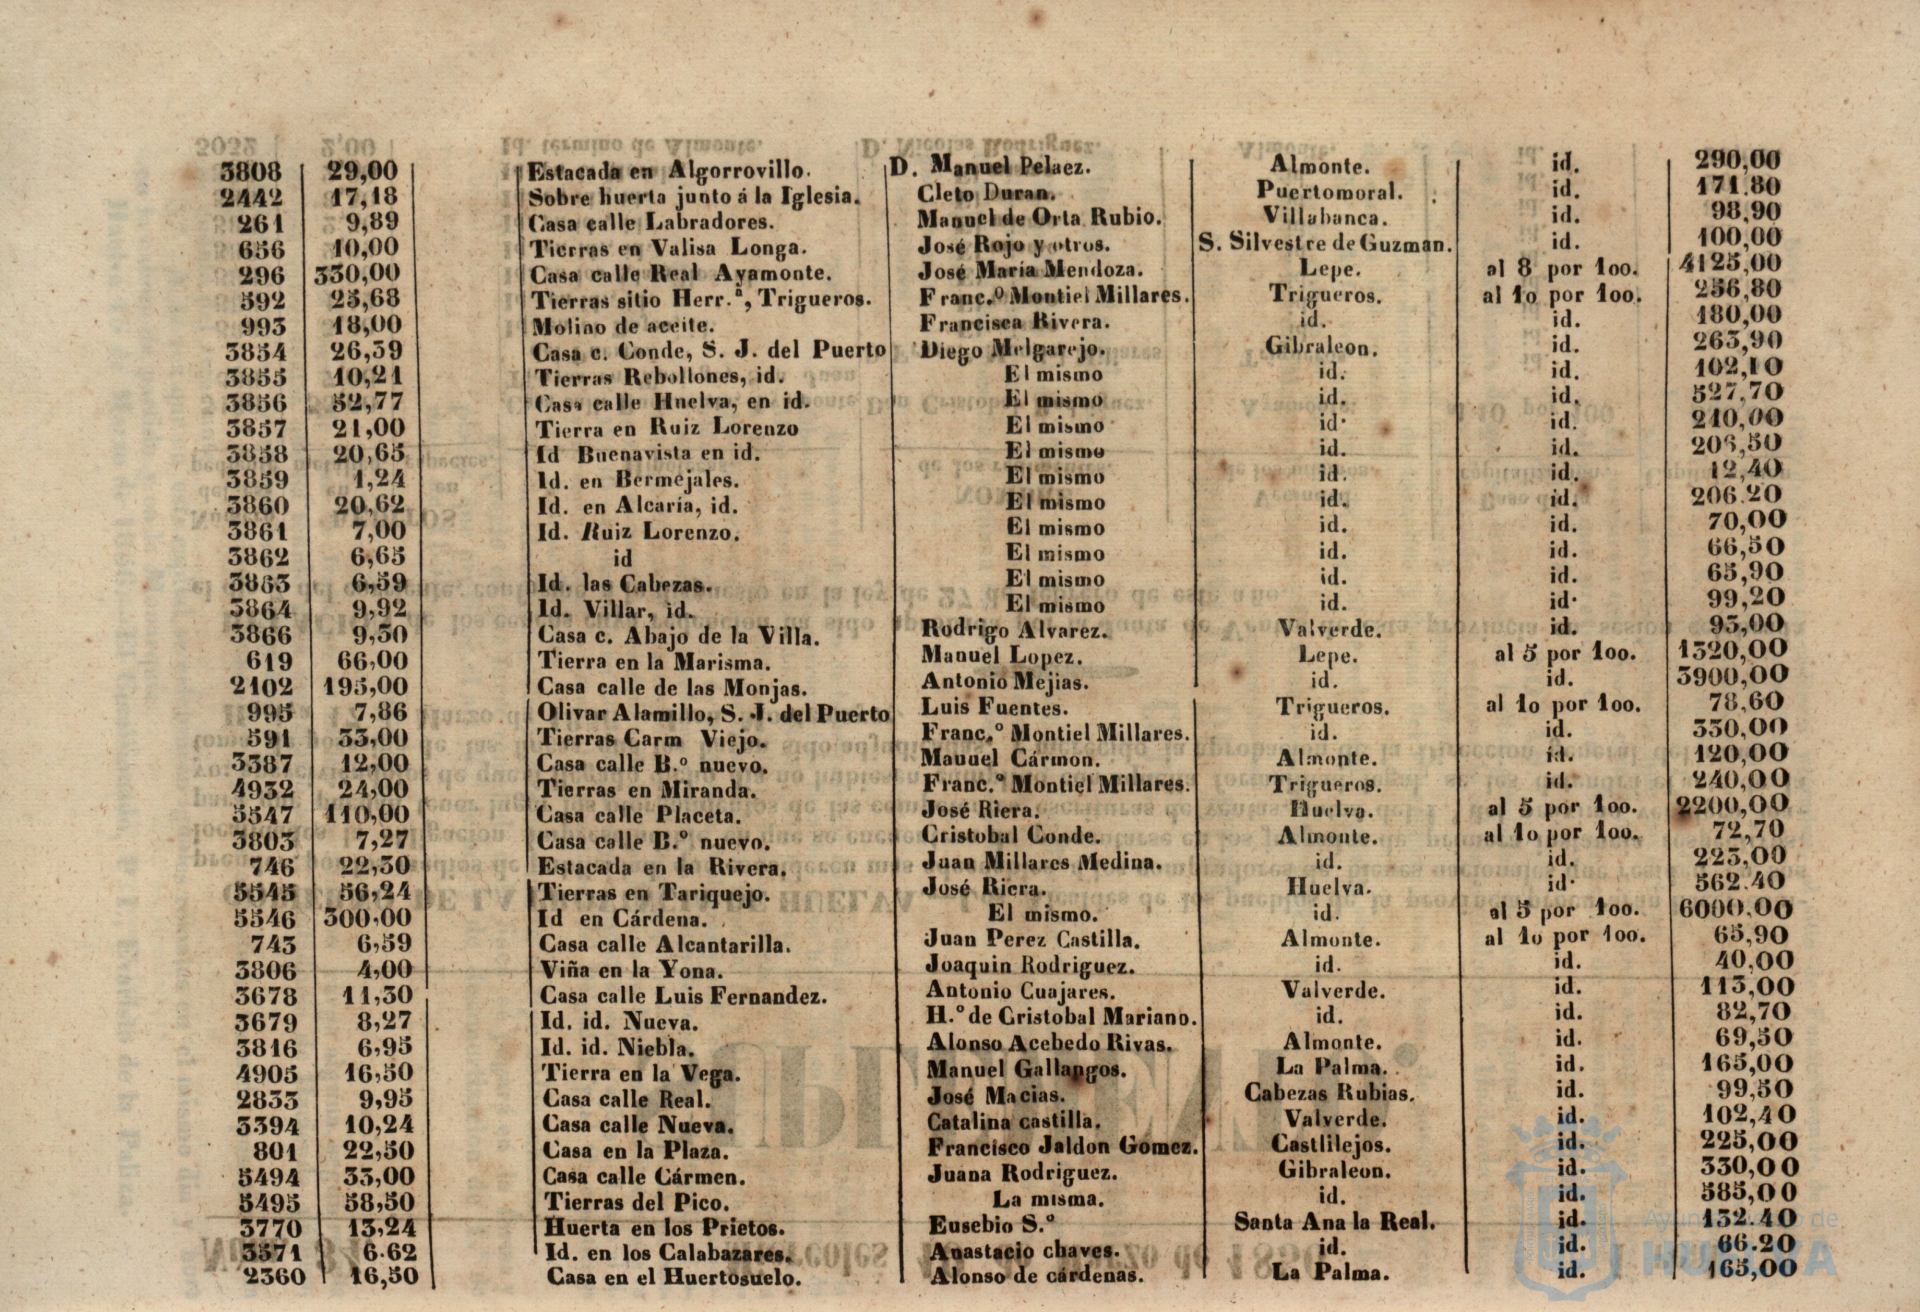 3808 29,00 Estacada en Algorrovillo. D. Manuel Pelaez. Almonte. id. 290,00
2442 17,18 Sobre huerta junto á la Iglesia. Cleto Duran. Puertomoral. id. 171.80
261 9,89 Casa calle Labradores. Manuel de Orta Rubio. Villabanca. id. 98,90
656 10,00 Tierras en Valisa Longa. José Rojo y otros. S. Silvestre de Guzman. id. 100,00
296 330,00 Casa calle Real Ayamonte. José María Mendoza. Lepe. al 8 por 100. 4125,00
592 25,68 Tierras sitio Herr.ª, Trigueros. Franc.º Montiel Millares. Trigueros. al 10 por 100. 256,80
993 18,00 Molino de aceite. Francisca Rivera. id. id. 180,00
3854 26,39 Casa c. Conde, S. J. del Puerto Diego Melgarejo. Gibraleon. id. 263,90
3855 10,21 Tierras Rebollones, id. El mismo id. id. 102,10
3856 52,77 Casa calle Huelva, en id. El mismo id. id. 527,70
3857 21,00 Tierra en Ruiz Lorenzo El mismo id. id. 210,00
3858 20,65 Id Buenavista en id. El mismo id. id. 206,50
3859 1,24 Id. en Bermejales. El mismo id. id. 12,40
3860 20,62 Id. en Alcaría, id. El mismo id. id. 206.20
3861 7,00 Id. Ruiz Lorenzo. El mismo id. id. 70,00
3862 6,65 id El mismo id. id. 66,50
3863 6,59 Id. las Cabezas. El mismo id. id. 65,90
3864 9,92 Id. Villar, id. El mismo id. id. 99,20
3866 9,30 Casa c. Abajo de la Villa. Rodrigo Alvarez. Valverde. id. 93,00
619 66,00 Tierra en la Marisma. Manuel Lopez. Lepe. al 5 por 100. 1320,00
2102 195,00 Casa calle de las Monjas. Antonio Mejias. id. id. 3900,00
995 7,86 Olivar Alamillo, S. J. del Puerto Luis Fuentes. Trigueros. al 10 por 100. 78,60
591 33,00 Tierras Carm Viejo. Franc.º Montiel Millares. id. id. 330,00
3387 12,00 Casa calle B.º nuevo. Manuel Cármon. Almonte. id. 120,00
4932 24,00 Tierras en Miranda. Franc.º Montiel Millares. Trigueros. id. 240,00
5547 110,00 Casa calle Placeta. José Riera. Huelva. al 5 por 100. 2200,00
3803 7,27 Casa calle B.º nuevo. Cristobal Conde. Almonte. al 10 por 100. 72,70
746 22,30 Estacada en la Rivera. Juan Millares Medina. id. id. 223,00
5545 56,24 Tierras en Tariquejo. José Riera. Huelva. id. 562.40
5546 300,00 Id en Cárdena. El mismo. id. al 5 por 100. 6000.00
743 6,59 Casa calle Alcantarilla. Juan Perez Castilla. Almonte. al 10 por 100. 65,90
3806 4,00 Viña en la Yona. Joaquin Rodriguez. id. id. 40,00
3678 11,30 Casa calle Luis Fernandez. Antonio Cuajares. Valverde. id. 113,00
3679 8,27 Id. id. Nueva. H.º de Cristobal Mariano. id. id. 82,70
3816 6,95 Id. id. Niebla. Alonso Acebedo Rivas. Almonte. id. 69,50
4905 16,50 Tierra en la Vega. Manuel Gallangos. La Palma. id. 165,00
2833 9,95 Casa calle Real. José Macias. Cabezas Rubias. id. 99,50
3394 10,24 Casa calle Nueva. Catalina castilla. Valverde. id. 102,40
801 22,50 Casa en la Plaza. Francisco Jaldon Gomez. Castlilejos. id. 225,00
5494 33,00 Casa calle Cármen. Juana Rodriguez. Gibraleon. id. 330,00
5495 58,50 Tierras del Pico. La misma. id. id. 585,00
3770 13,24 Huerta en los Prietos. Eusebio S.º Santa Ana la Real. id. 132.40
3571 6.62 Id. en los Calabazares. Anastacio chaves. id. id. 66.20
2360 16,50 Casa en el Huertosuelo. Alonso de cárdenas. La Palma. id. 165,00